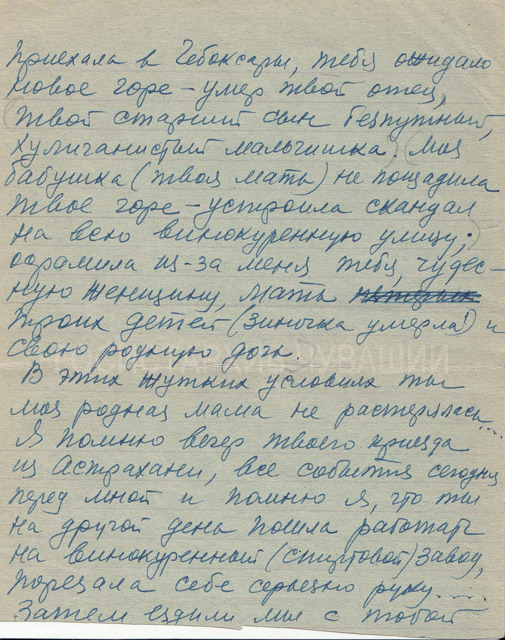 Приехала в Чебоксары, тебя ожидало
новое горе – умер твой отец,
твой старший сын безпутный,
хулиганистый мальчишка. Моя
бабушка (твоя мать) не пощадила
твое горе – устроила скандал
на всю винокуренную улицу,
осрамила из-за меня тебя, чудес-
ную женщину, мать
троих детей (Зиночка умерла!) и
свою родную дочь.
В этих жутких условиях ты
моя родная мама не растерялась...
Я помню вечер твоего приезда
из Астрахани, все события сегодня
передо мной и помню я, что ты
на другой день пошла работать
на винокуренный (спиртовой) завод,
порезала себе серьезно руку....
Затем ездили мы с тобой